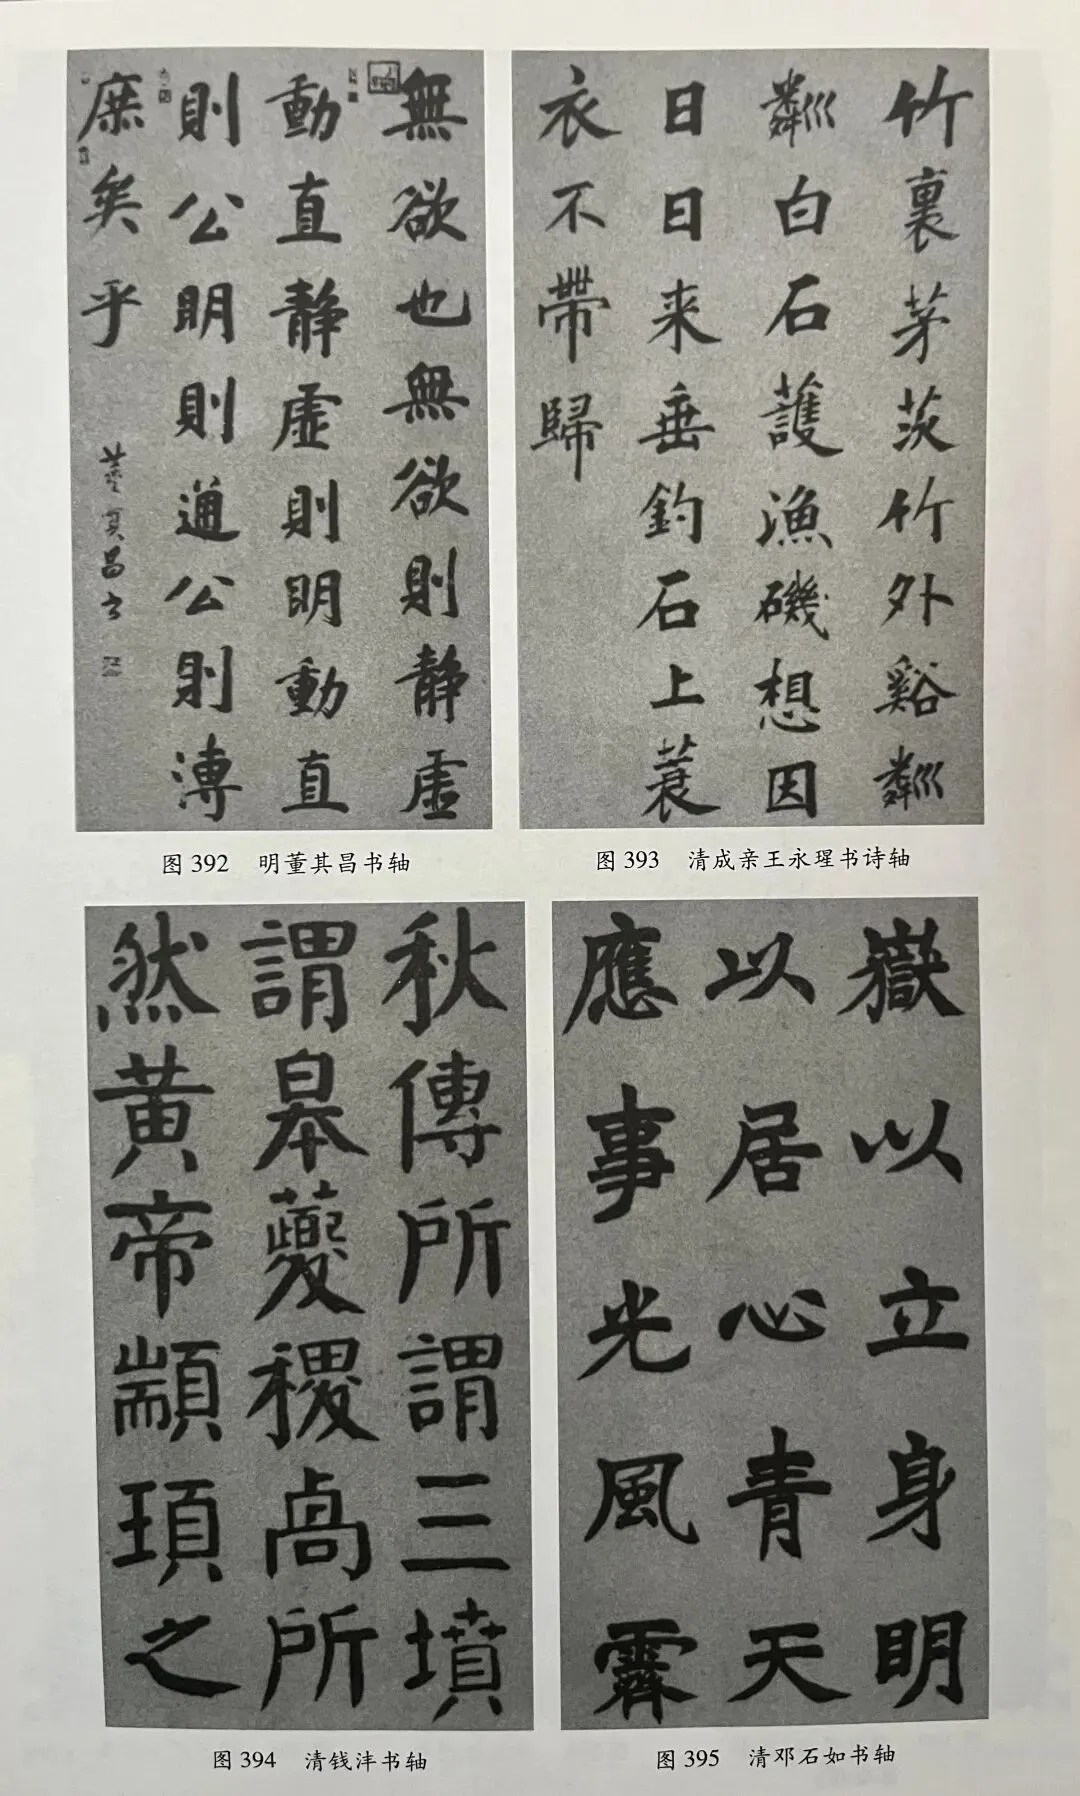 無欲也無欲則静虚
動直静虚則明動直
則公明則通公則溥
庶矣乎
董其昌书
图 392 明董其昌书轴
竹裏茅茨竹外谿粼
粼白石護漁磯想因
日日来垂釣石上蓑
衣不帶歸
图 393 清成亲王永瑆书诗轴
秋傳所謂三墳
謂皋夔稷卨所
然黄帝顓頊之
图 394 清钱沣书轴
嶽以立身明
以居心青天
應事光風霽
图 395 清邓石如书轴